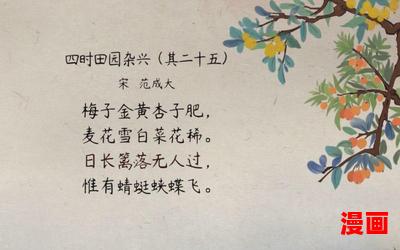 四时田园杂兴（其二十五）
宋 范成大
梅子金黄杏子肥，
麦花雪白菜花稀。
日长篱落无人过，
惟有蜻蜓蛱蝶飞。
漫画